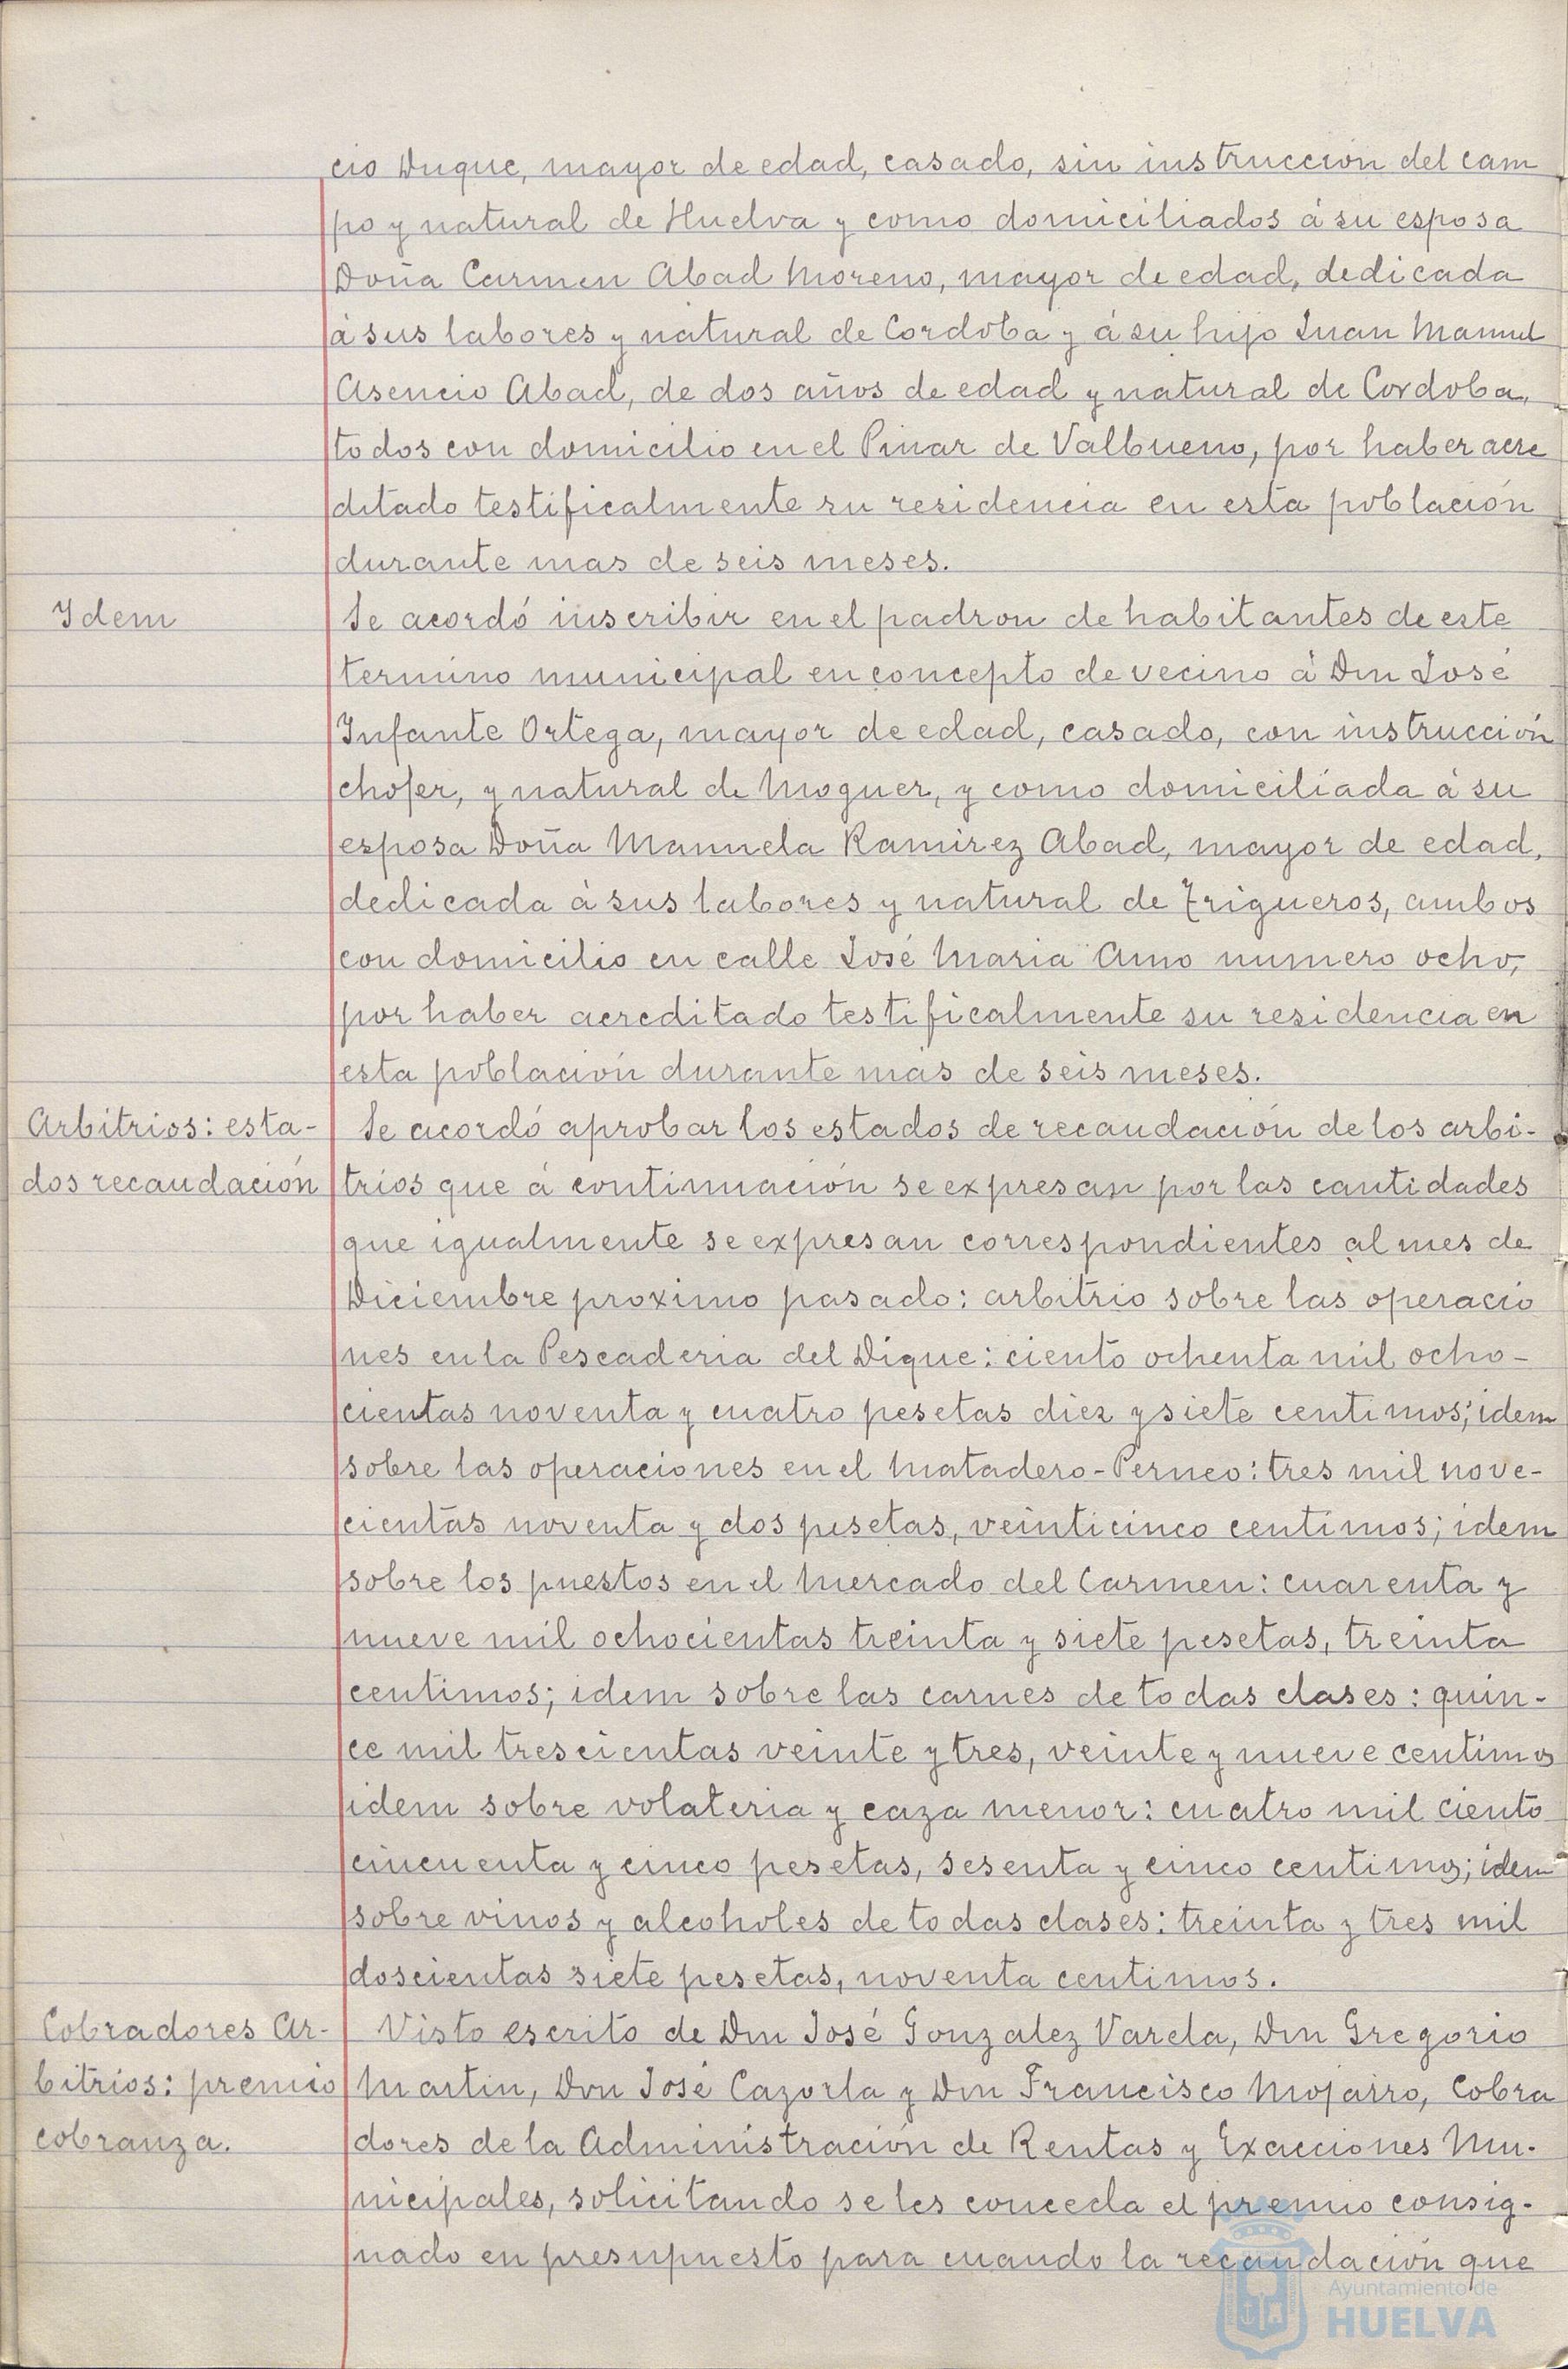 cio Duque, mayor de edad, casado, sin instrucción del cam
po y natural de Huelva y como domiciliados á su esposa
Doña Carmen Abad Moreno, mayor de edad, dedicada
á sus labores y natural de Cordoba y á su hijo Juan Manuel
Asencio Abad, de dos años de edad y natural de Cordoba,
todos con domicilio en el Pinar de Valbueno, por haber acre
ditado testificalmente su residencia en esta población
durante mas de seis meses.
Idem
Se acordó inscribir en el padron de habitantes de este
termino municipal en concepto de vecino á Don José
Infante Ortega, mayor de edad, casado, con instrucción
chofer, y natural de Moguer, y como domiciliada á su
esposa Doña Manuela Ramirez Abad, mayor de edad,
dedicada á sus labores y natural de Trigueros, ambos
con domicilio en calle José Maria Amo numero ocho,
por haber acreditado testificalmente su residencia en
esta población durante mas de seis meses.
Arbitrios: esta-
dos recaudación
Se acordó aprobar los estados de recaudación de los arbi-
trios que á continuación se expresan por las cantidades
que igualmente se expresan correspondientes al mes de
Diciembre proximo pasado: arbitrio sobre las operacio
nes en la Pescaderia del Dique: ciento ochenta mil ocho-
cientas noventa y cuatro pesetas diez y siete centimos; idem
sobre las operaciones en el Matadero-Perneo: tres mil nove-
cientas noventa y dos pesetas, veinticinco centimos; idem
sobre los puestos en el Mercado del Carmen: cuarenta y
nueve mil ochocientas treinta y siete pesetas, treinta
centimos; idem sobre las carnes de todas clases: quin-
ce mil trescientas veinte y tres, veinte y nueve centimos
idem sobre volateria y caza menor: cuatro mil ciento
cincuenta y cinco pesetas, sesenta y cinco centimos; idem
sobre vinos y alcoholes de todas clases: treinta y tres mil
doscientas siete pesetas, noventa centimos.
Cobradores Ar-
bitrios: premio
cobranza.
Visto escrito de Don José Gonzalez Varela, Don Gregorio
Martin, Don José Cazorla y Don Francisco Mojarro, Cobra
dores de la Administración de Rentas y Exacciones Mu-
nicipales, solicitando se les conceda el premio consig-
nado en presupuesto para cuando la recaudación que
Ayuntamiento de
HUELVA